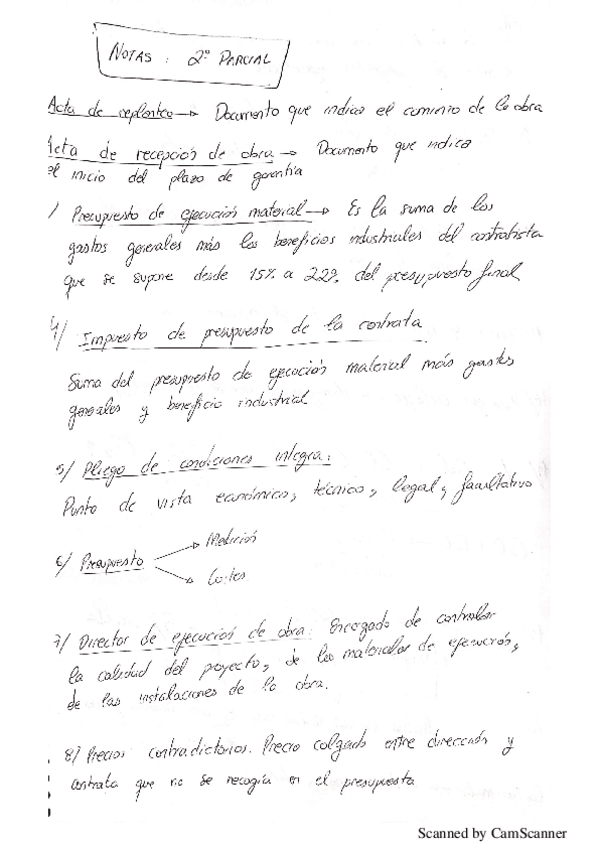 NOTAS: 2º PARCIAL
Acta de replanteo → Documento que indica el comienzo de la obra
Acta de recepción de obra → Documento que indica
el inicio del plazo de garantía
/ Presupuesto de ejecución material → Es la suma de los
gastos generales más los beneficios industriales del contratista
que se supone desde 15% a 22% del presupuesto final
4/ Impuesto de presupuesto de la contrata
Suma del presupuesto de ejecución material más gastos
generales y beneficio industrial
5/ Pliego de condiciones integra:
Punto de vista económico, técnico, legal, facultativo
6/ Presupuesto → Medición
→ Costes
7/ Director de ejecución de obra: Encargado de controlar
la calidad del proyecto, de los materiales de ejecución,
de las instalaciones de la obra.
8/ Precios contradictorios. Precio entre dirección y
contrata que no se recogía en el presupuesto
Scanned by CamScanner